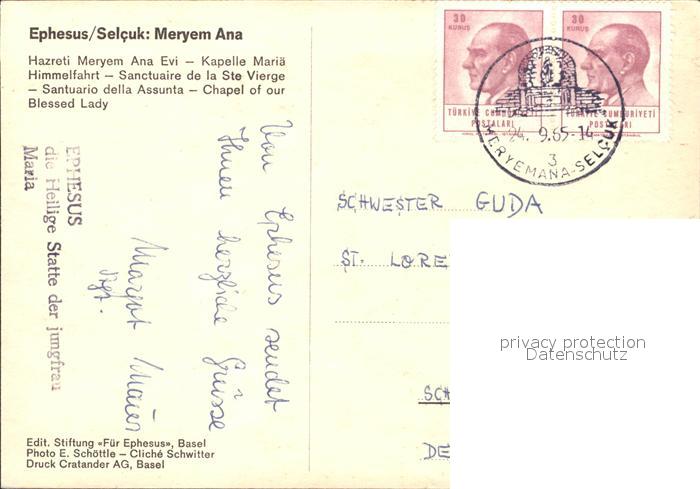 Ephesus/Selçuk: Meryem Ana
Hazreti Meryem Ana Evi – Kapelle Mariä
Himmelfahrt – Sanctuaire de la Ste Vierge
– Santuario della Assunta – Chapel of our
Blessed Lady
EPHESUS
die Heilige Statte der jungfrau
Maria
Von Ephesus sendet
Ihnen herzliche Grüsse
Margot Maier
Edit. Stiftung «Für Ephesus», Basel
Photo E. Schöttle – Cliché Schwitter
Druck Cratander AG, Basel
30
KURUS
30
KURUS
TÜRKİYE CUMHURİYETİ
POSTALARI
TÜRKİYE CUMHURİYETİ
POSTALARI
24. 9.65-14
3
MERYEMANA-SELÇUK
SCHWESTER GUDA
ST. LORE
SCH
DE
privacy protection
Datenschutz